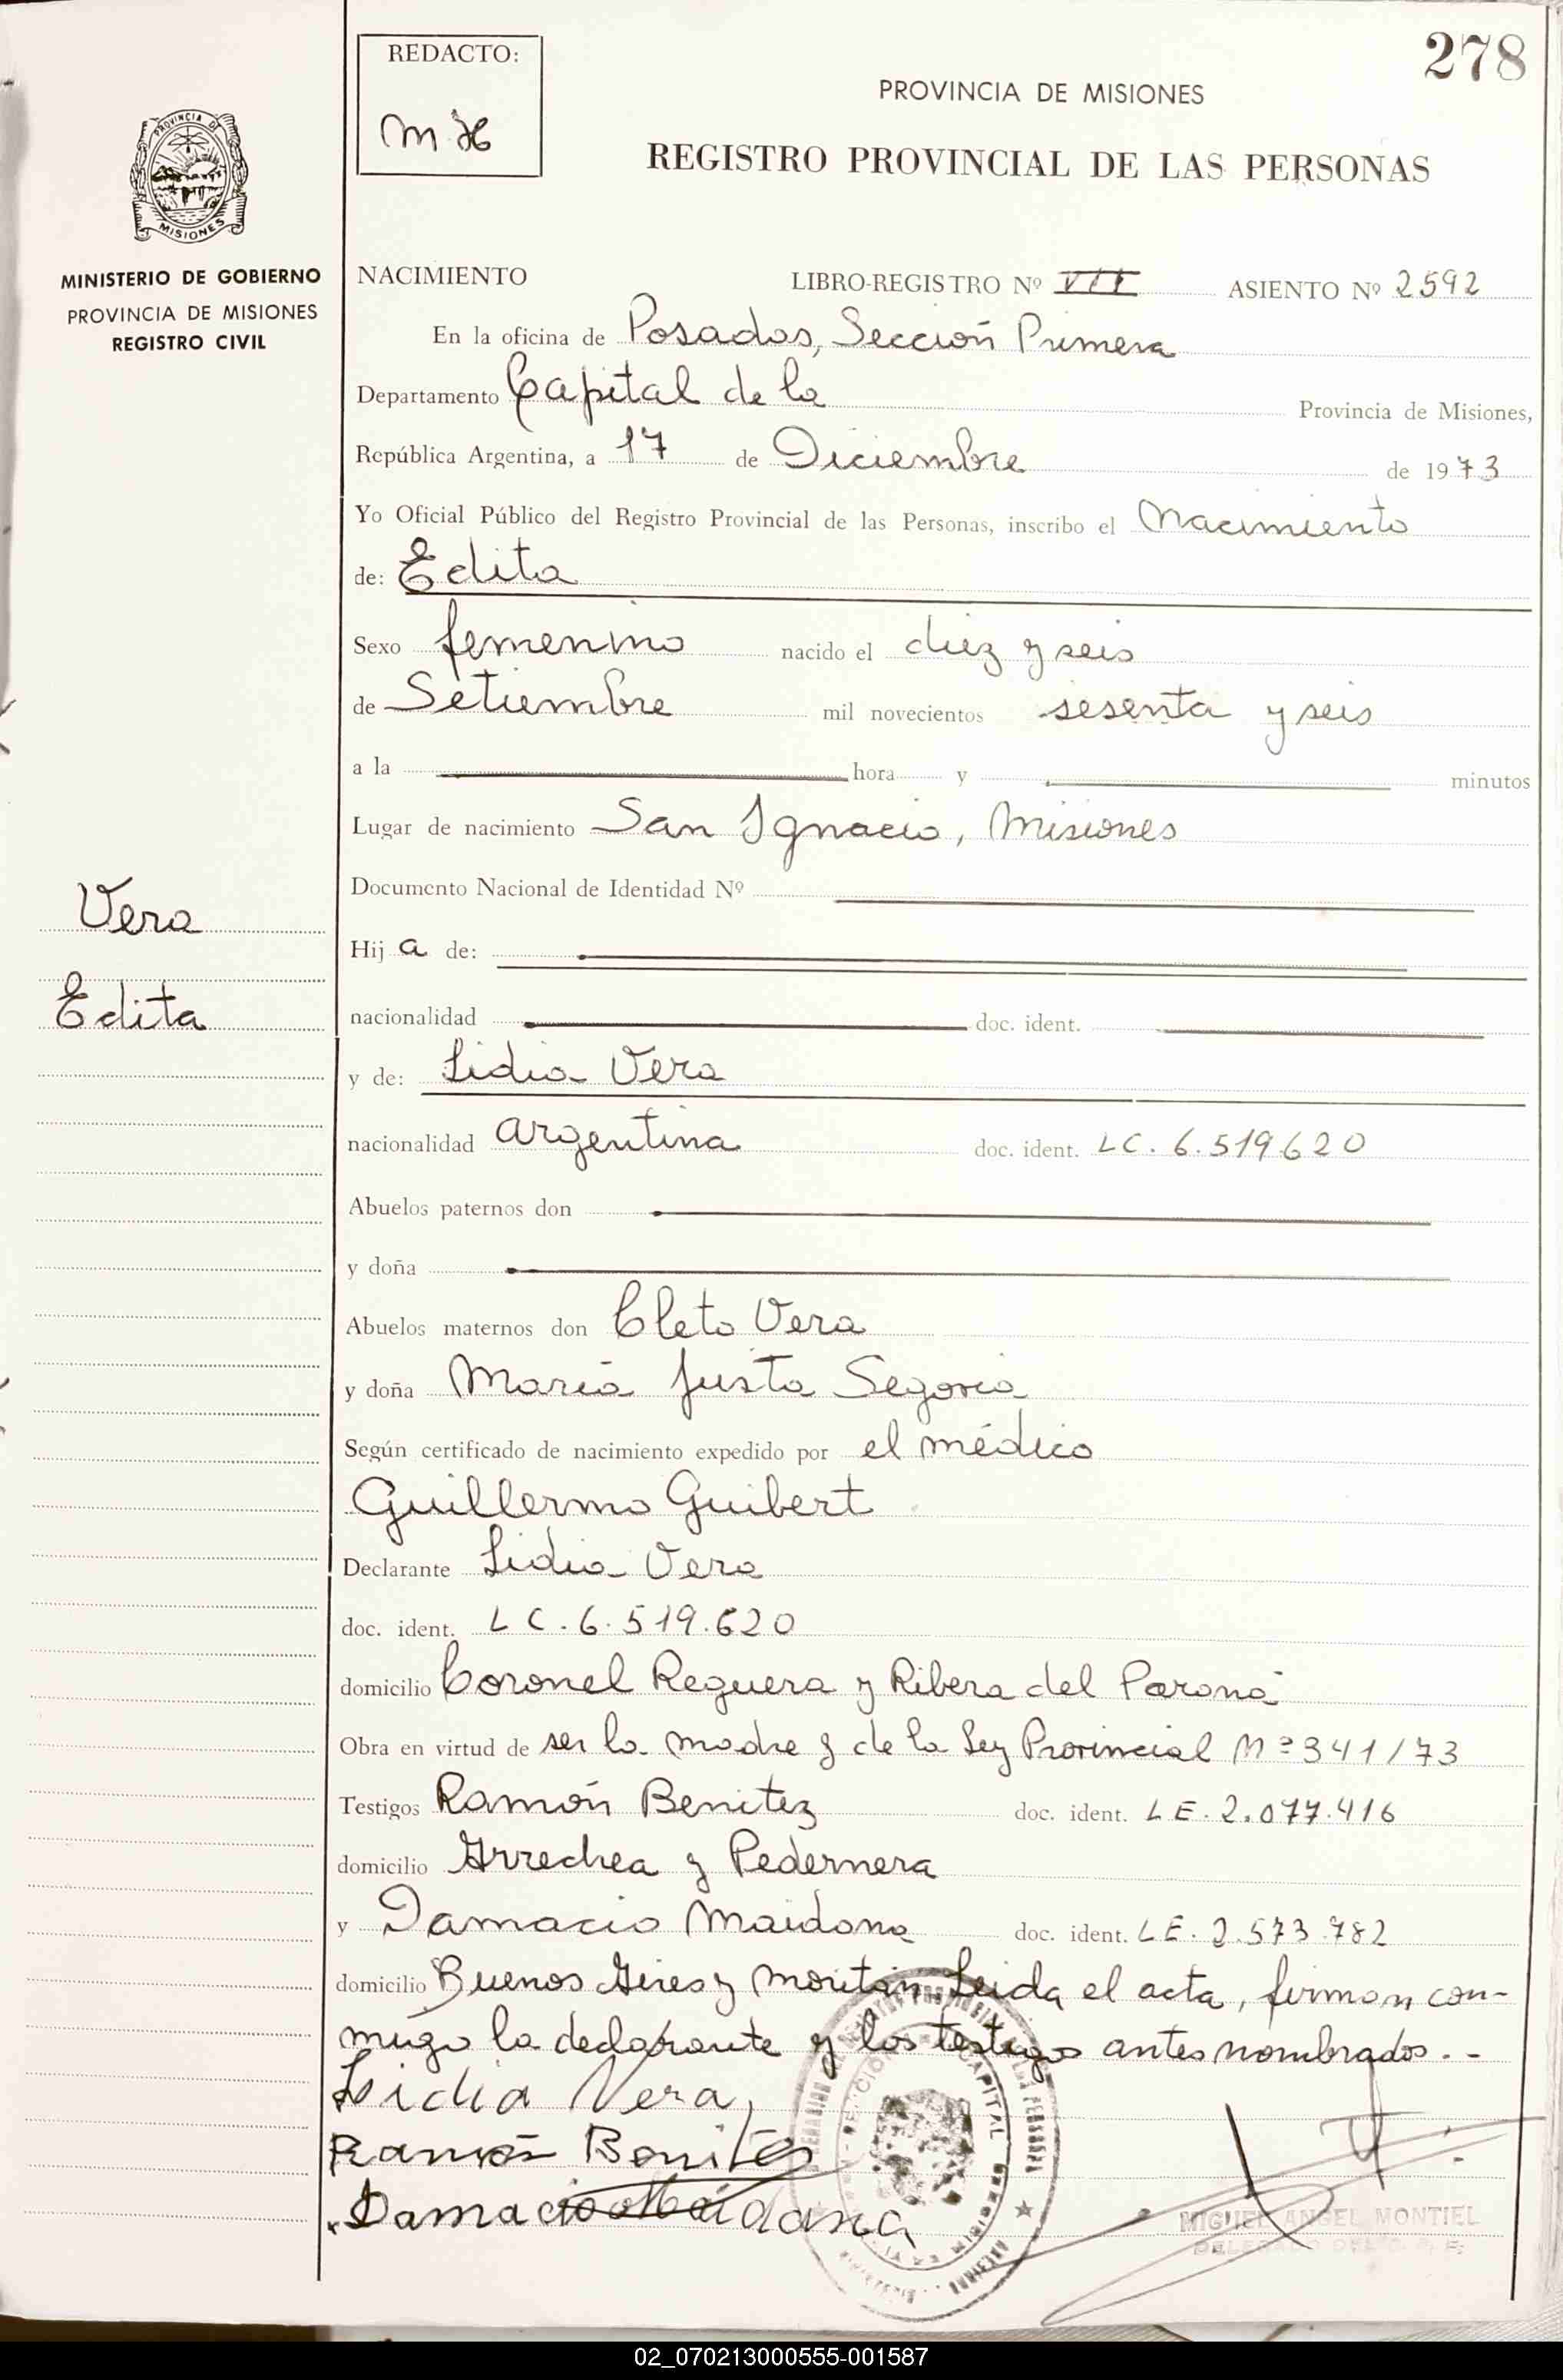 278
REDACTO:
M H
PROVINCIA DE MISIONES
REGISTRO PROVINCIAL DE LAS PERSONAS
PROVINCIA DE
MISIONES
MINISTERIO DE GOBIERNO
PROVINCIA DE MISIONES
REGISTRO CIVIL
NACIMIENTO LIBRO-REGISTRO Nº VII ASIENTO Nº 2592
En la oficina de Posadas, Sección Primera
Departamento Capital de la Provincia de Misiones,
República Argentina, a 17 de Diciembre de 1973
Yo Oficial Público del Registro Provincial de las Personas, inscribo el Nacimiento
de: Edita
Sexo femenino nacido el diez y seis
de Setiembre mil novecientos sesenta y seis
a la hora y minutos
Lugar de nacimiento San Ignacio, Misiones
Documento Nacional de Identidad Nº
Vera
Edita
Hija de:
nacionalidad doc. ident.
y de: Lidia Vera
nacionalidad argentina doc. ident. LC. 6.519.620
Abuelos paternos don
y doña
Abuelos maternos don Cleto Vera
y doña María Justa Segovia
Según certificado de nacimiento expedido por el médico
Guillermo Guibert
Declarante Lidia Vera
doc. ident. LC. 6.519.620
domicilio Coronel Reguera y Ribera del Paraná
Obra en virtud de ser la madre y de la Ley Provincial Nº 341/73
Testigos Ramón Benitez doc. ident. LE. 2.077.416
domicilio Arrechea y Pedernera
y Damacio Maidana doc. ident. LE. 2.573.782
domicilio Buenos Aires y Moritán Leida el acta, firman con-
migo la declarante y los testigos antes nombrados. -
Lidia Vera
Ramón Benites
Damacio Maidana
CAPITAL
MIGUEL ANGEL MONTIEL
02_070213000555-001587